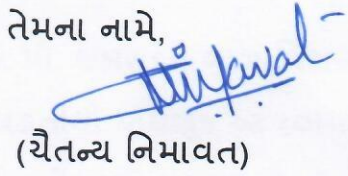 તેમના નામે,
(ચૈતન્ય નિમાવત)